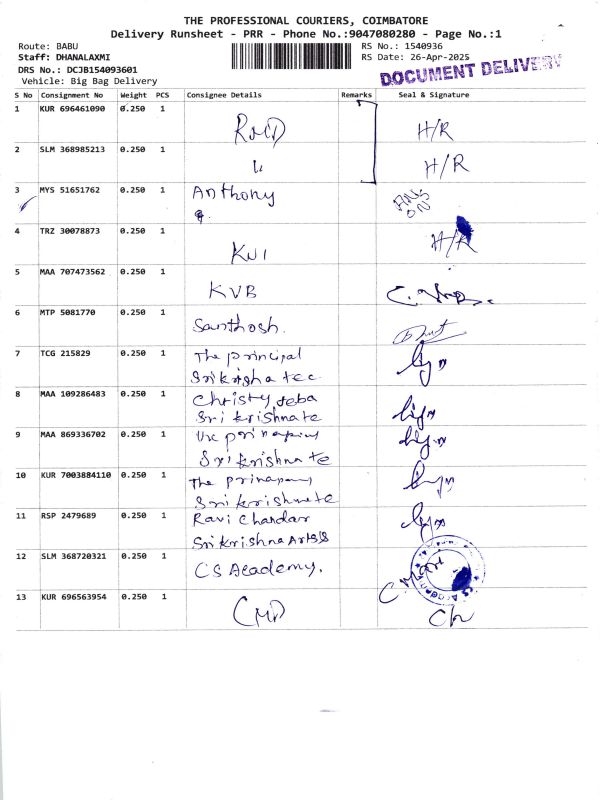 THE PROFESSIONAL COURIERS, COIMBATORE
Delivery Runsheet - PRR - Phone No.:9047080280 - Page No.:1
Route: BABU
RS No.: 1540936
Staff: DHANALAXMI
RS Date: 26-Apr-2025
DRS No.: DCJB154093601
Vehicle: Big Bag Delivery
DOCUMENT DELIVERY
S No Consignment No Weight PCS Consignee Details Remarks Seal & Signature
1 KUR 696461090 0.250 1
H/R
2 SLM 368985213 0.250 1
H/R
3 MYS 51651762 0.250 1 Anthony
4 TRZ 30078873 0.250 1
H/R
5 MAA 707473562 0.250 1 KVB
6 MTP 5081770 0.250 1 Santhosh.
7 TCG 215829 0.250 1 The principal
Srikrisha tec
8 MAA 109286483 0.250 1 Christy Jeba
Sri krishnate
9 MAA 869336702 0.250 1
Srikrishna te
10 KUR 7003884110 0.250 1 The
Srikrishnate
11 RSP 2479689 0.250 1 Ravi Chandar
Srikrishna Arts
12 SLM 368720321 0.250 1 CS Academy.
13 KUR 696563954 0.250 1